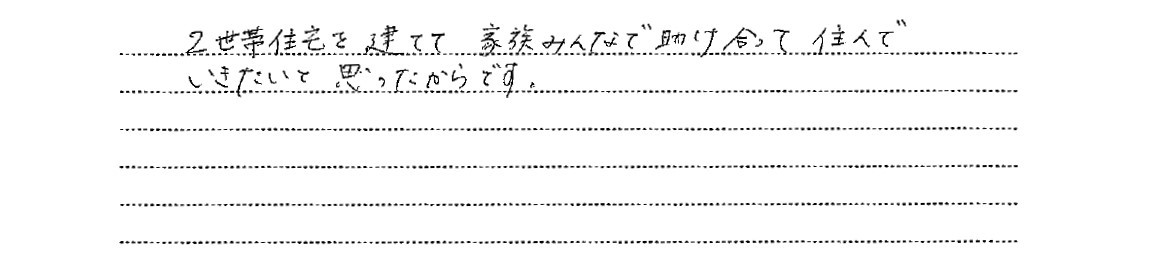 2世帯住宅を建てて 家族みんなで助け合って 住んで
いきたいと思ったからです。